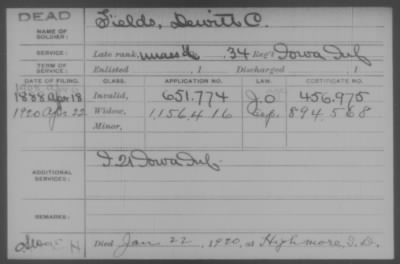 DEAD
NAME OF SOLDIER:
Fields, Dewitt C.
SERVICE:
Late rank, 34 Reg't Iowa Inf
TERM OF SERVICE:
Enlisted , 1
Discharged , 1
DATE OF FILING.
CLASS.
APPLICATION NO.
LAW.
CERTIFICATE NO.
1888 Apr 18
Invalid,
651.774
J.O
456.975
1920 Apr. 22
Widow,
1,156,416
894,568
Minor,
ADDITIONAL SERVICES:
I 21 Iowa Inf.
REMARKS:
Died Jan 22, 1920, at Highmore, S.D.